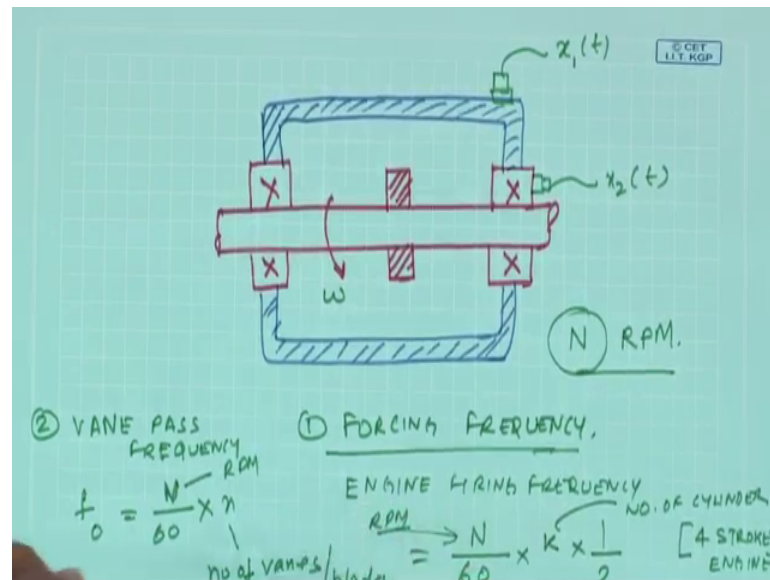 x₁(t)
© CET
I.I.T. KGP
X X x₂(t)
X X
ω
N RPM.
② VANE PASS FREQUENCY
f₀ = N/60 × n
RPM
no of vanes/blades
① FORCING FREQUENCY.
ENGINE FIRING FREQUENCY
RPM NO. OF CYLINDER
= N/60 × K × 1/2 [4 STROKE ENGINE